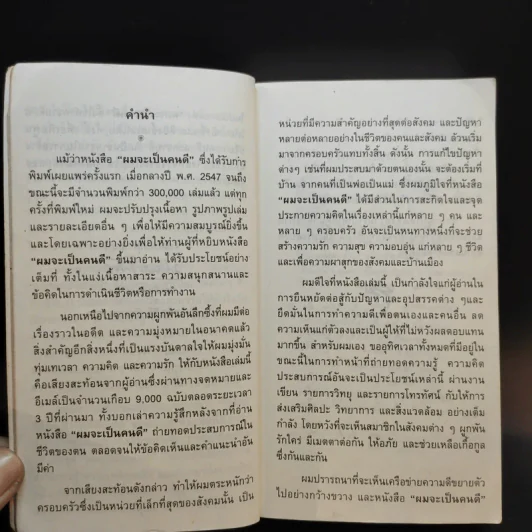 คำนำ
แม้ว่าหนังสือ "ผมจะเป็นคนดี" ซึ่งได้รับการ
พิมพ์เผยแพร่ครั้งแรก เมื่อกลางปี พ.ศ. 2547 จนถึง
ขณะนี้จะมีจำนวนพิมพ์กว่า 300,000 เล่มแล้ว แต่ทุก
ครั้งที่พิมพ์ใหม่ ผมจะปรับปรุงเนื้อหา รูปภาพรูปเล่ม
และรายละเอียดอื่น ๆ เพื่อให้มีความสมบูรณ์ยิ่งขึ้น
และโดยเฉพาะอย่างยิ่งเพื่อให้ท่านผู้ที่หยิบหนังสือ
"ผมจะเป็นคนดี" ขึ้นมาอ่าน ได้รับประโยชน์อย่าง
เต็มที่ ทั้งในแง่เนื้อหาสาระ ความสนุกสนานและ
ข้อคิดในการดำเนินชีวิตหรือการทำงาน
นอกเหนือไปจากความผูกพันอันลึกซึ้งที่ผมมีต่อ
เรื่องราวในอดีต และความมุ่งหมายในอนาคตแล้ว
สิ่งสำคัญอีกสิ่งหนึ่งที่เป็นแรงบันดาลใจให้ผมมุ่งมั่น
ทุ่มเทเวลา ความคิด และความรัก ให้กับหนังสือเล่มนี้
คือเสียงสะท้อนจากผู้อ่านซึ่งผ่านทางจดหมายและ
อีเมล์เป็นจำนวนเกือบ 9,000 ฉบับตลอดระยะเวลา
3 ปีที่ผ่านมา ทั้งบอกเล่าความรู้สึกหลังจากที่อ่าน
หนังสือ "ผมจะเป็นคนดี" ถ่ายทอดประสบการณ์ใน
ชีวิตของตน ตลอดจนให้ข้อคิดเห็นและคำแนะนำอัน
มีค่า
จากเสียงสะท้อนดังกล่าว ทำให้ผมตระหนักว่า
ครอบครัวซึ่งเป็นหน่วยที่เล็กที่สุดของสังคมนั้น เป็น
หน่วยที่มีความสำคัญอย่างที่สุดต่อสังคม และปัญหา
หลายต่อหลายอย่างในชีวิตของคนและสังคม ล้วนเริ่ม
มาจากครอบครัวแทบทั้งสิ้น ดังนั้น การแก้ไขปัญหา
ต่างๆ เช่นที่ผมประสบมาด้วยตนเองนั้น จะต้องเริ่มที่
บ้าน จากคนที่เป็นพ่อเป็นแม่ ซึ่งผมภูมิใจที่หนังสือ
"ผมจะเป็นคนดี" ได้มีส่วนในการสะกิดใจและจุด
ประกายความคิดในเรื่องเหล่านี้แก่หลาย ๆ คน และ
หลาย ๆ ครอบครัว อันจะเป็นหนทางหนึ่งที่จะช่วย
สร้างความรัก ความสุข ความอบอุ่น แก่หลาย ๆ ชีวิต
และเพื่อความผาสุกของสังคมและบ้านเมือง
ผมดีใจที่หนังสือเล่มนี้ เป็นกำลังใจแก่ผู้อ่านใน
การยืนหยัดต่อสู้กับปัญหาและอุปสรรคต่าง ๆและ
ยึดมั่นในการทำความดีเพื่อตนเองและคนอื่น ลด
ความเห็นแก่ตัวลงและเป็นผู้ให้ที่ไม่หวังผลตอบแทน
มากขึ้น สำหรับผมเอง ขออุทิศเวลาทั้งหมดที่มีอยู่ใน
ขณะนี้ในการทำหน้าที่ถ่ายทอดความรู้ ความคิด
ประสบการณ์อันจะเป็นประโยชน์เหล่านี้ ผ่านงาน
เขียน รายการวิทยุ และรายการโทรทัศน์ กับให้การ
ส่งเสริมศิลปะ วิทยาการ และสิ่งแวดล้อม อย่างเต็ม
กำลัง โดยหวังที่จะเห็นสมาชิกในสังคมต่าง ๆ ผูกพัน
รักใคร่ มีเมตตาต่อกัน ให้อภัย และช่วยเหลือเกื้อกูล
ซึ่งกันและกัน
ผมปรารถนาที่จะเห็นเครือข่ายความดีขยายตัว
ไปอย่างกว้างขวาง และหนังสือ "ผมจะเป็นคนดี"